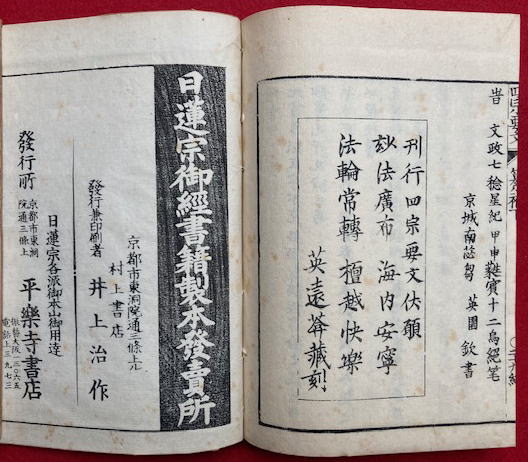 四宗要文
昔 文政七稔星紀甲申蕤賓十二烏絕笔
京城南苾蒭 英園 欽書
刊行四宗要文伏願
玅法廣布 海内安寧
法輪常轉 檀越快樂
英遠莽藏刻
日蓮宗御經書籍製本發賣所
京都市東洞院通三條上ル
村上書店
發行兼印刷者 井上治作
日蓮宗各派御本山御用達
發行所 京都市東洞院通三條上 平樂寺書店